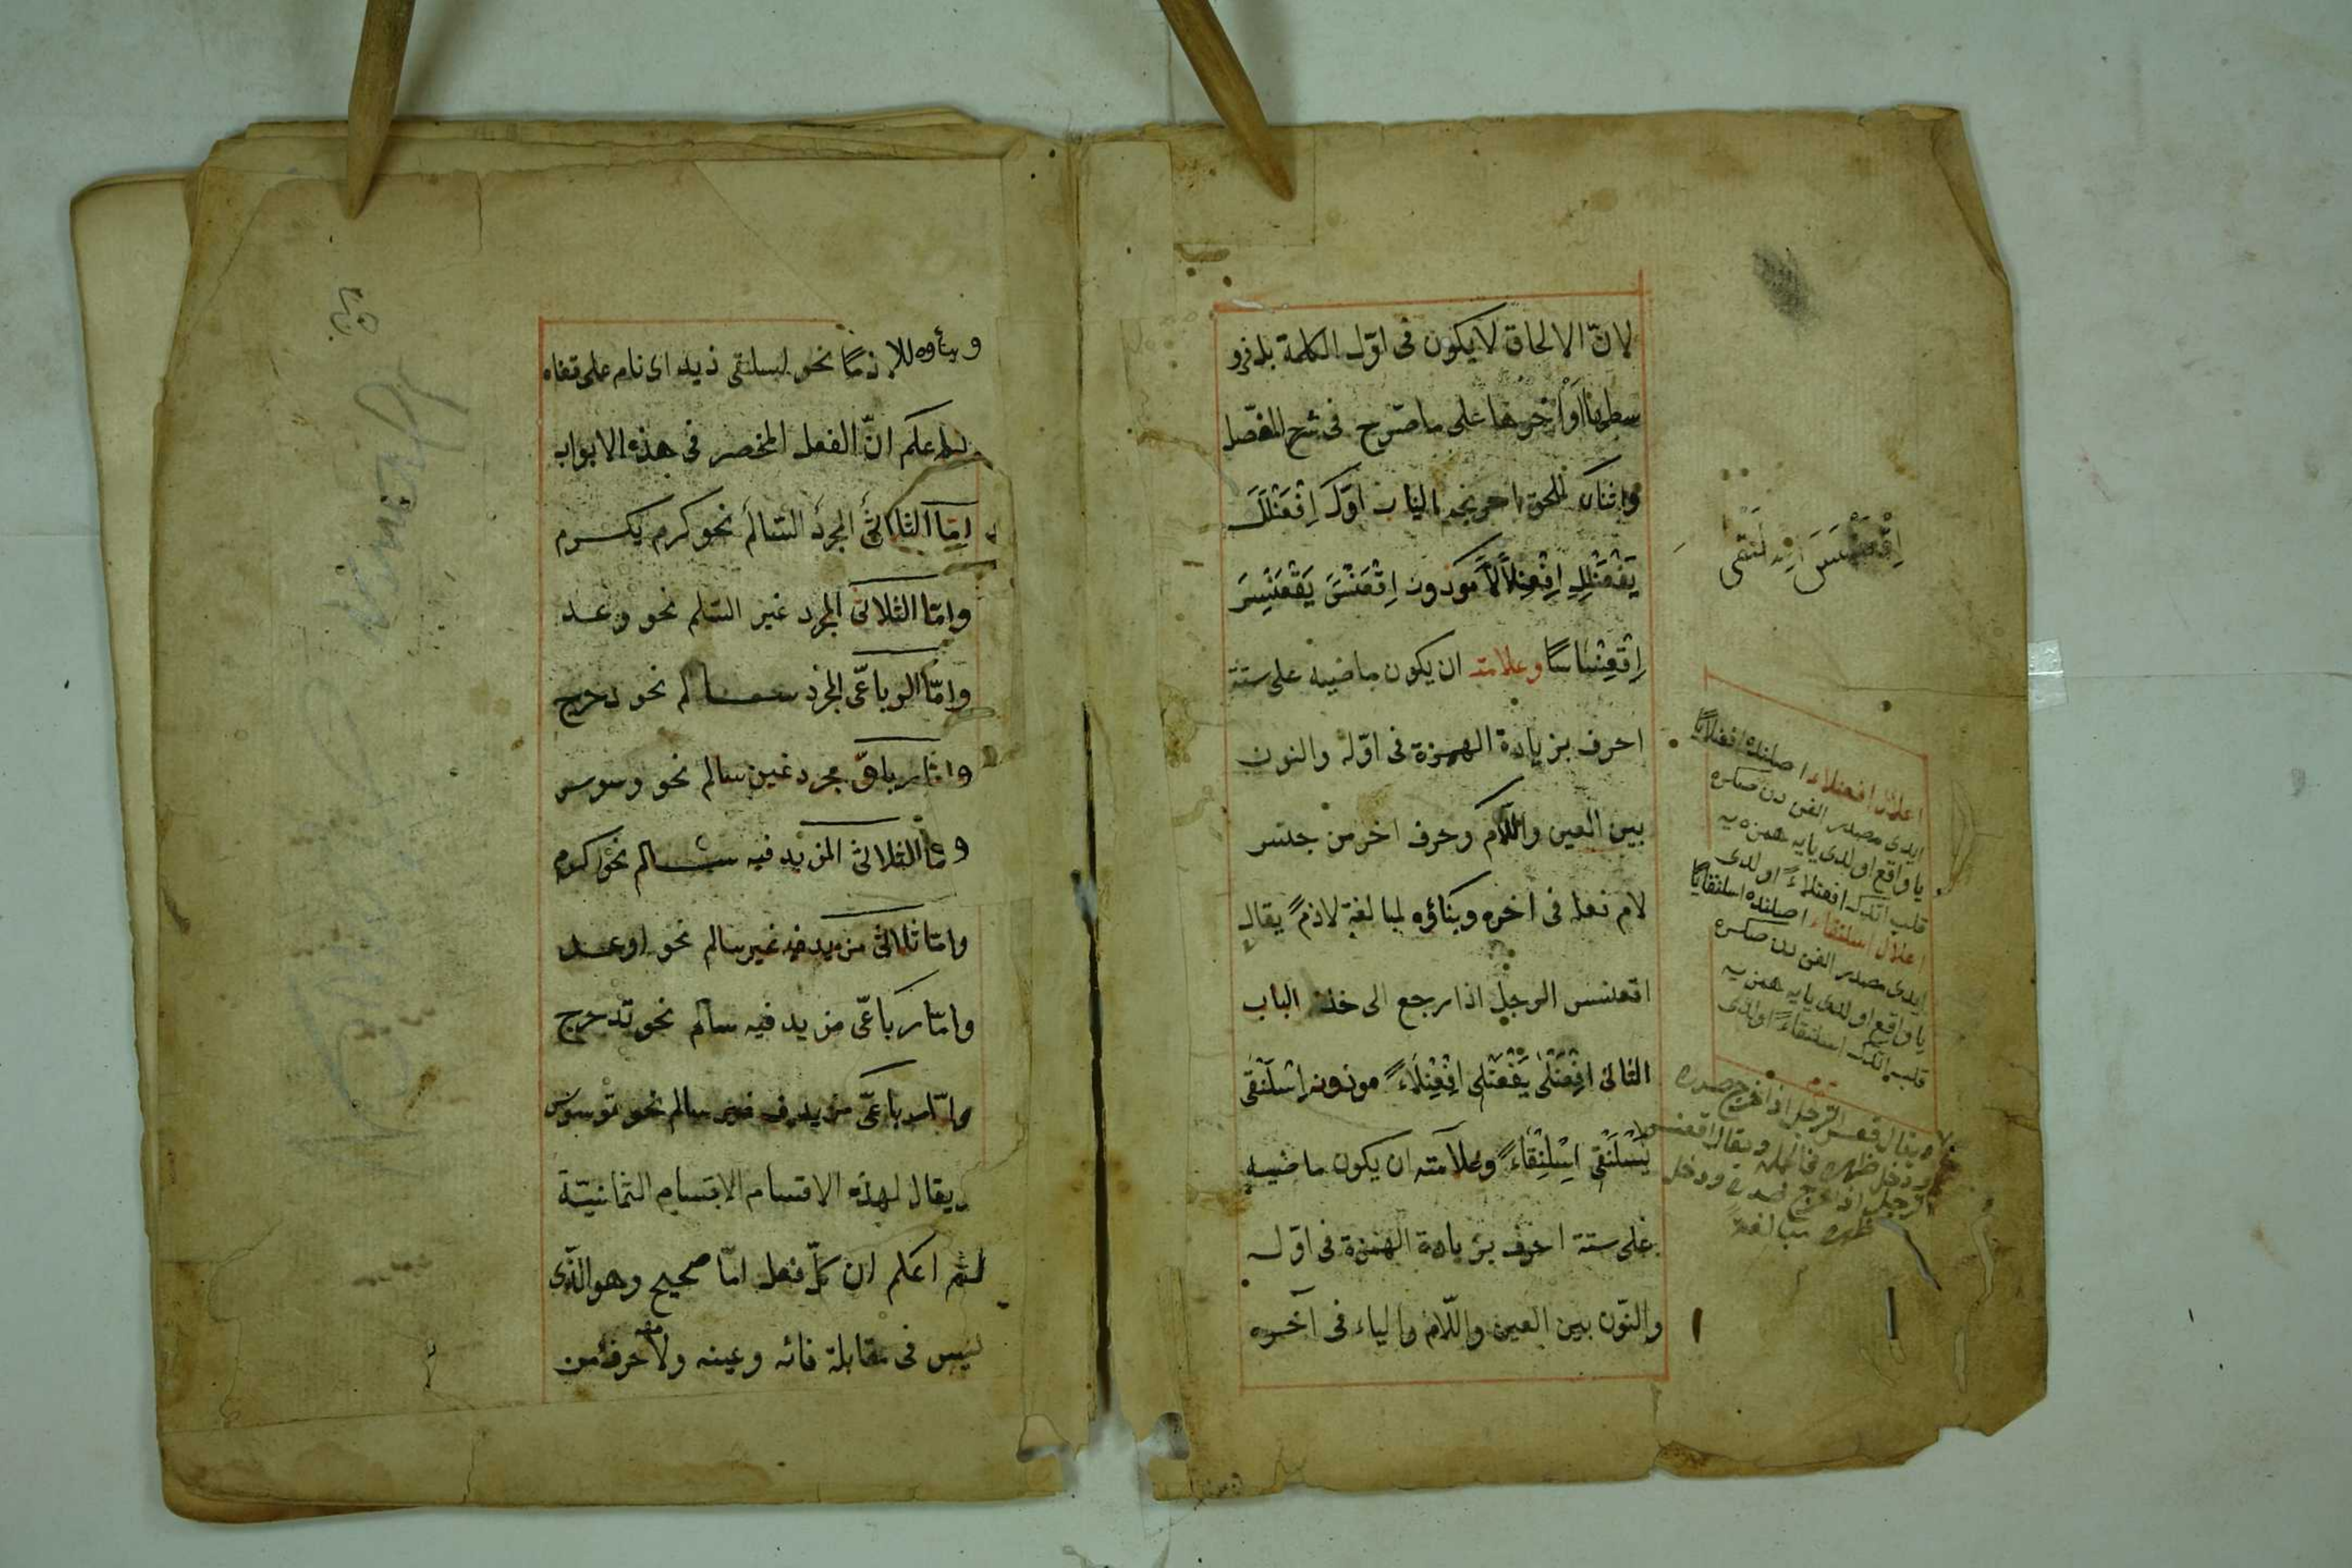 لانّ الالحاق لا يكون فى اوّل الكلمة بل فى و
سطها او آخرها على ما صرّح فى شرح المفصّل
واثنان لملحق احرنجم الباب اوّل اِفْعَنْلَلَ
يَفْعَنْلِلُ اِفْعِنْلَالاً موزون اِقْعَنْسَسَ يَقْعَنْسِسُ
اِقْعِنْسَاسًا وعلامته ان يكون ماضيه على ستة
احرف بزيادة الهمزة فى اوّله والنون
بين العين واللّام وحرف اخر من جنس
لام فعله فى اخره وبناؤه لمبالغة لازم يقال
اقعنسس الرجل اذا رجع الى خلف الباب
الثانى اِفْعَنْلٰى يَفْعَنْلٖى اِفْعِنْلَاءً موزونه اِسْلَنْقٰى
يَسْلَنْقٖى اِسْلِنْقَاءً وعلامته ان يكون ماضيه
على ستة احرف بزيادة الهمزة فى اوّله
والنّون بين العين واللّام والياء فى آخره
اعلال افعنلاء اصلنده افعنلايًا
ايدى مصدر الفن دن صكره
يا واقع اولدى يايه همزه يه
قلب اتدك افعنلاءً اولدى
اعلال اسلنقاء اصلنده اسلنقايًا
ايدى مصدر الفن دن صكره
يا واقع اولدى يايه همزه يه
قلب اتدك اسلنقاءً اولدى
يقال قعس الرجل اذا خرج صدره
ودخل ظهره ويقال اقعنسس
الرجل اذا خرج صدره ودخل
ظهره مبالغة
وبناؤه للازم نحو اسلنقى زيد اى نام على قفاه
اعلم انّ الفعل المنحصر فى هذه الابواب
امّا الثلاثى المجرد السالم نحو كرم يكرم
وامّا الثلاثى المجرد غير السالم نحو وعد
وامّا الرباعّى المجرد سالم نحو دحرج
وامّا رباعّى مجرد غير سالم نحو وسوس
وامّا الثلاثى المزيد فيه سالم نحو اكرم
وامّا ثلاثى مزيد فيه غير سالم نحو اوعد
وامّا رباعّى مزيد فيه سالم نحو تدحرج
وامّا رباعّى مزيد فيه غير سالم نحو توسوس
ويقال لهذه الاقسام الاقسام الثمانيّة
ثم اعلم ان كلّ فعل امّا صحيح وهو الذّى
ليس فى مقابلة فائه وعينه ولامه حرف من